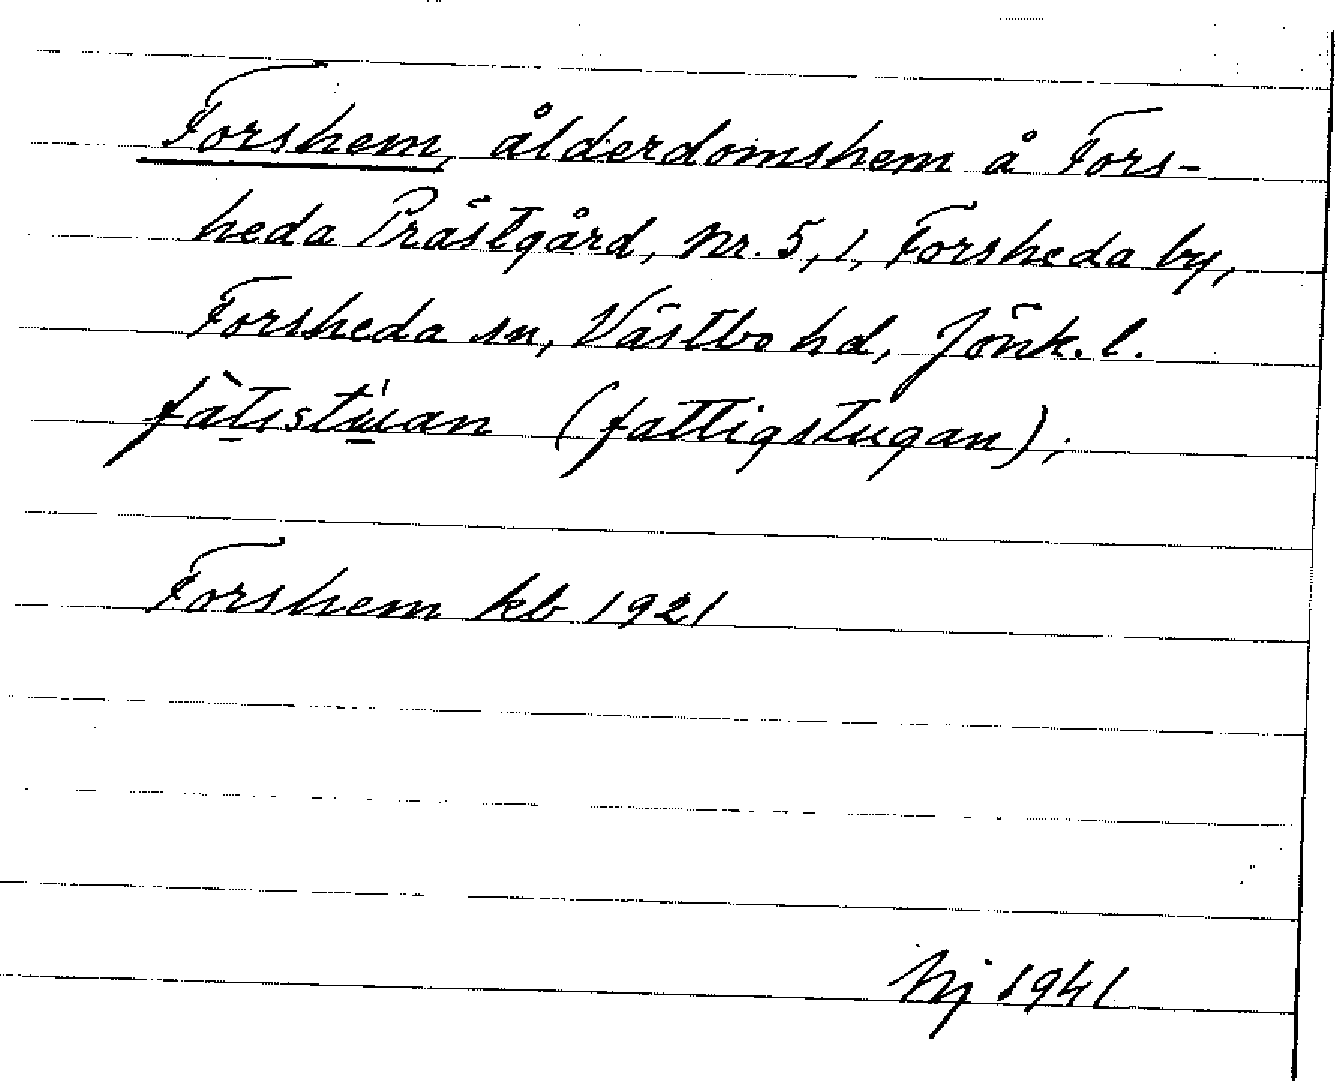 Forshem, ålderdomshem å Fors-
heda Prästgård, nr. 5,1, Forsheda by,
Forsheda sn, Västbo hd, Jönk. l.
(fattigstugan);
Forshem kb 1921
1941